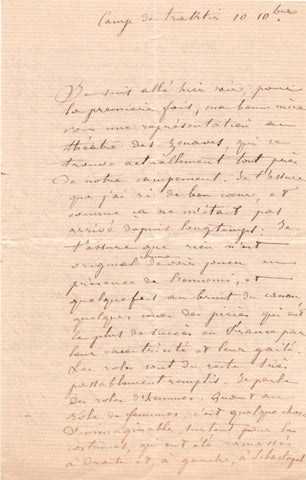 Camp de Traktir 10 10bres
Je suis allé hier soir, pour
la premiere fois, ma bonne mère
voir une représentation au
théâtre des zouaves, qui se
trouve actuellement tout près
de notre campement. Je t'assure
que j'ai ri de bon cœur, et
comme ça ne m'était pas
arrivé depuis longtemps. Je
t'assure que rien n'est
original comme de voir jouer en
présence de l'ennemi, et
quelquefois au bruit du canon
quelques unes des pieces qui ont
le plus de succès en France par
leur excentricité et leur gaité.
Les roles sont du reste très
passablement remplis. Je parle
des roles d'hommes. Quant au
rôle de femmes, c'est quelque chose
d'inimaginable surtout pour les
costumes, qui ont été ramassés
à droite et, à gauche, à Sebastopol